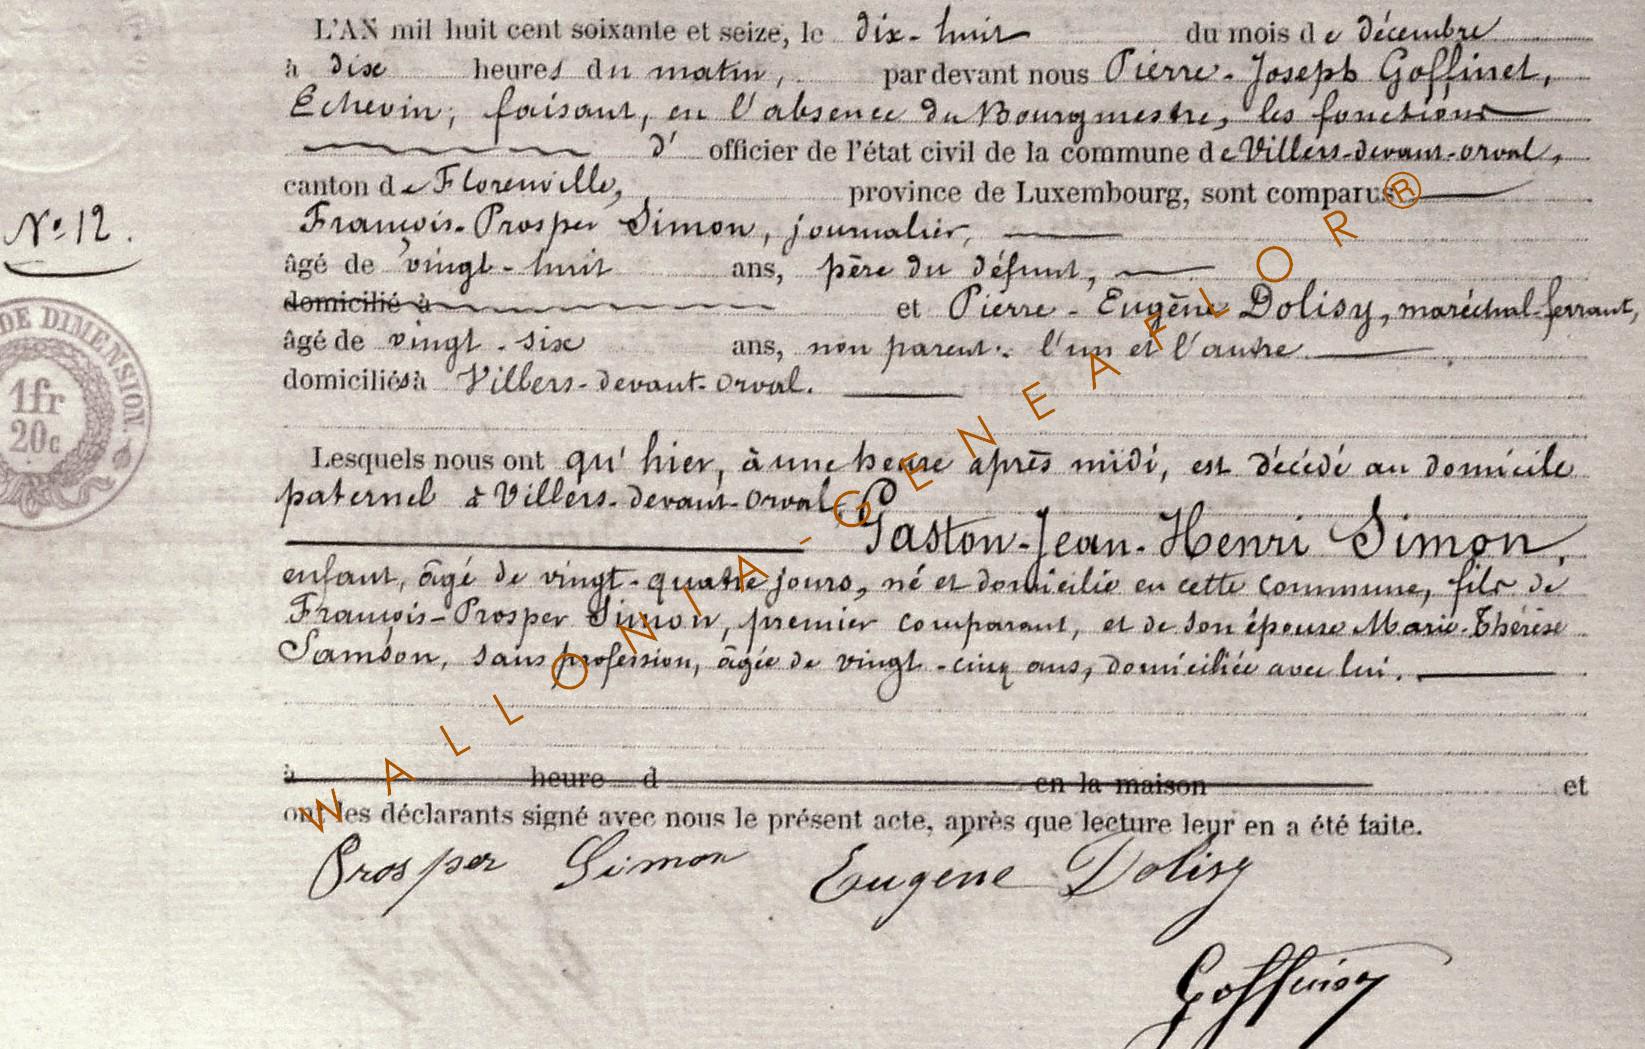 L'AN mil huit cent soixante et seize, le dix-huit du mois de décembre
à dix heures du matin, par devant nous Pierre-Joseph Goffinet,
Echevin, faisant, en l'absence du Bourgmestre, les fonctions
d' officier de l'état civil de la commune de Villers-devant-Orval,
canton de Florenville, province de Luxembourg, sont comparus
Nº 12.
François-Prosper Simon, journalier,
âgé de vingt-huit ans, père du défunt,
domicilié à et Pierre-Eugène Dolisy, maréchal-ferrant,
âgé de vingt-six ans, non parent; l'un et l'autre
domiciliés à Villers-devant-Orval.
DE DIMENSION.
1fr
20c
Lesquels nous ont qu'hier, à une heure après midi, est décédé au domicile
paternel à Villers-devant-Orval,
Gaston-Jean-Henri Simon,
enfant, âgé de vingt-quatre jours, né et domicilié en cette commune, fils de
François-Prosper Simon, premier comparant, et de son épouse Marie-Thérèse
Samson, sans profession, âgée de vingt-cinq ans, domiciliée avec lui.
à heure d en la maison et
ont les déclarants signé avec nous le présent acte, après que lecture leur en a été faite.
Prosper Simon Eugène Dolisy
Goffinet
WALLONIA-GENEAFLOR®